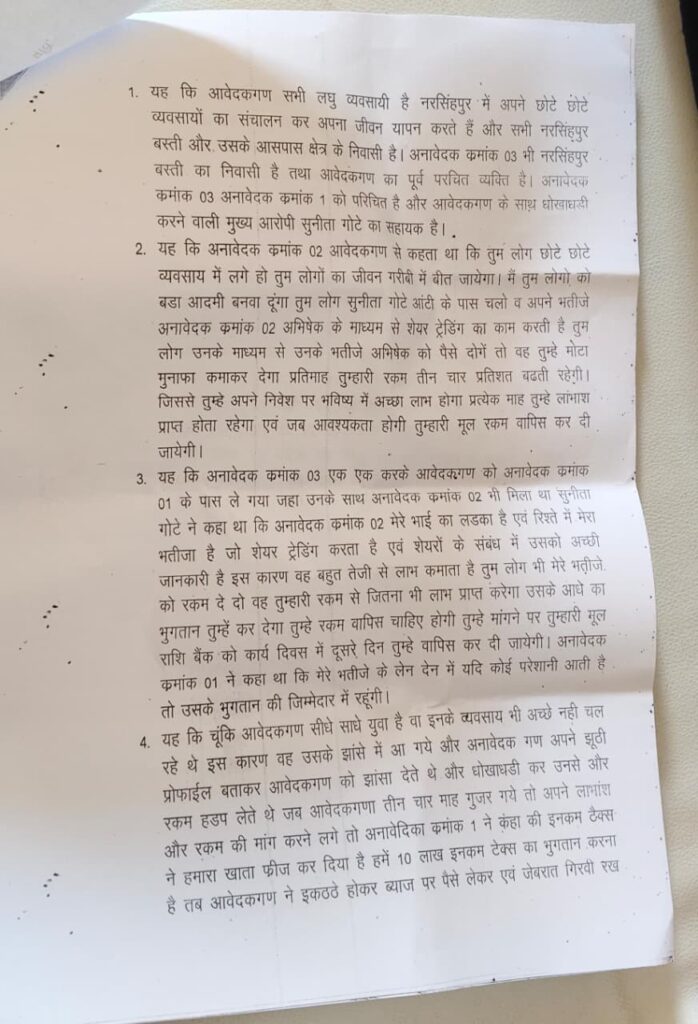 1. यह कि आवेदकगण सभी लघु व्यवसायी है नरसिंहपुर में अपने छोटे छोटे
व्यवसायों का संचालन कर अपना जीवन यापन करते हैं और सभी नरसिंहपुर
बस्ती और उसके आसपास क्षेत्र के निवासी है। अनावेदक कमांक 03 भी नरसिंहपुर
बस्ती का निवासी है तथा आवेदकगण का पूर्व परचित व्यक्ति है। अनावेदक
कमांक 03 अनावेदक कमांक 1 को परिचित है और आवेदकगण के साथ धोखाधडी
करने वाली मुख्य आरोपी सुनीता गोटे का सहायक है।
2. यह कि अनावेदक कमांक 02 आवेदकगण से कहता था कि तुम लोग छोटे छोटे
व्यवसाय में लगे हो तुम लोगों का जीवन गरीबी में बीत जायेगा। मैं तुम लोगो को
बडा आदमी बनवा दूंगा तुम लोग सुनीता गोटे आंटी के पास चलो व अपने भतीजे
अनावेदक कमांक 02 अभिषेक के माध्यम से शेयर ट्रेडिंग का काम करती है तुम
लोग उनके माध्यम से उनके भतीजे अभिषेक को पैसे दोगें तो वह तुम्हे मोटा
मुनाफा कमाकर देगा प्रतिमाह तुम्हारी रकम तीन चार प्रतिशत बढती रहेगी।
जिससे तुम्हे अपने निवेश पर भविष्य में अच्छा लाभ होगा प्रत्येक माह तुम्हे लांभाश
प्राप्त होता रहेगा एवं जब आवश्यकता होगी तुम्हारी मूल रकम वापिस कर दी
जायेगी।
3. यह कि अनावेदक कमांक 03 एक एक करके आवेदकगण को अनावेदक कमांक
01 के पास ले गया जहा उनके साथ अनावेदक कमांक 02 भी मिला था सुनीता
गोटे ने कहा था कि अनावेदक कमांक 02 मेरे भाई का लडका है एवं रिश्ते में मेरा
भतीजा है जो शेयर ट्रेडिंग करता है एवं शेयरों के संबंध में उसको अच्छी
जानकारी है इस कारण वह बहुत तेजी से लाभ कमाता है तुम लोग भी मेरे भतीजे
को रकम दे दो वह तुम्हारी रकम से जितना भी लाभ प्राप्त करेगा उसके आधे का
भुगतान तुम्हें कर देगा तुम्हे रकम वापिस चाहिए होगी तुम्हे मांगने पर तुम्हारी मूल
राशि बैंक को कार्य दिवस में दूसरे दिन तुम्हे वापिस कर दी जायेगी। अनावेदक
कमांक 01 ने कहा था कि मेरे भतीजे के लेन देन में यदि कोई परेशानी आती है
तो उसके भुगतान की जिम्मेदार में रहूंगी।
4. यह कि चूंकि आवेदकगण सीधे साधे युवा है वा इनके व्यवसाय भी अच्छे नही चल
रहे थे इस कारण वह उसके झांसे में आ गये और अनावेदक गण अपने झूठी
प्रोफाईल बताकर आवेदकगण को झांसा देते थे और धोखाधडी कर उनसे और
रकम हडप लेते थे जब आवेदकगणा तीन चार माह गुजर गये तो अपने लाभांश
और रकम की मांग करने लगे तो अनावेदिका कमांक 1 ने कहा की इनकम टैक्स
ने हमारा खाता फीज कर दिया है हमें 10 लाख इनकम टेक्स का भुगतान करना
है तब आवेदकगण ने इकठठे होकर ब्याज पर पैसे लेकर एवं जेबरात गिरवी रख